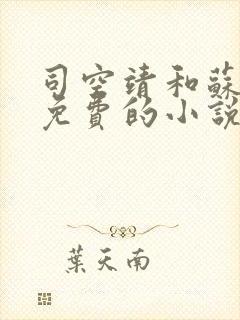 司空靖和蘇
免費的小說
葉天南